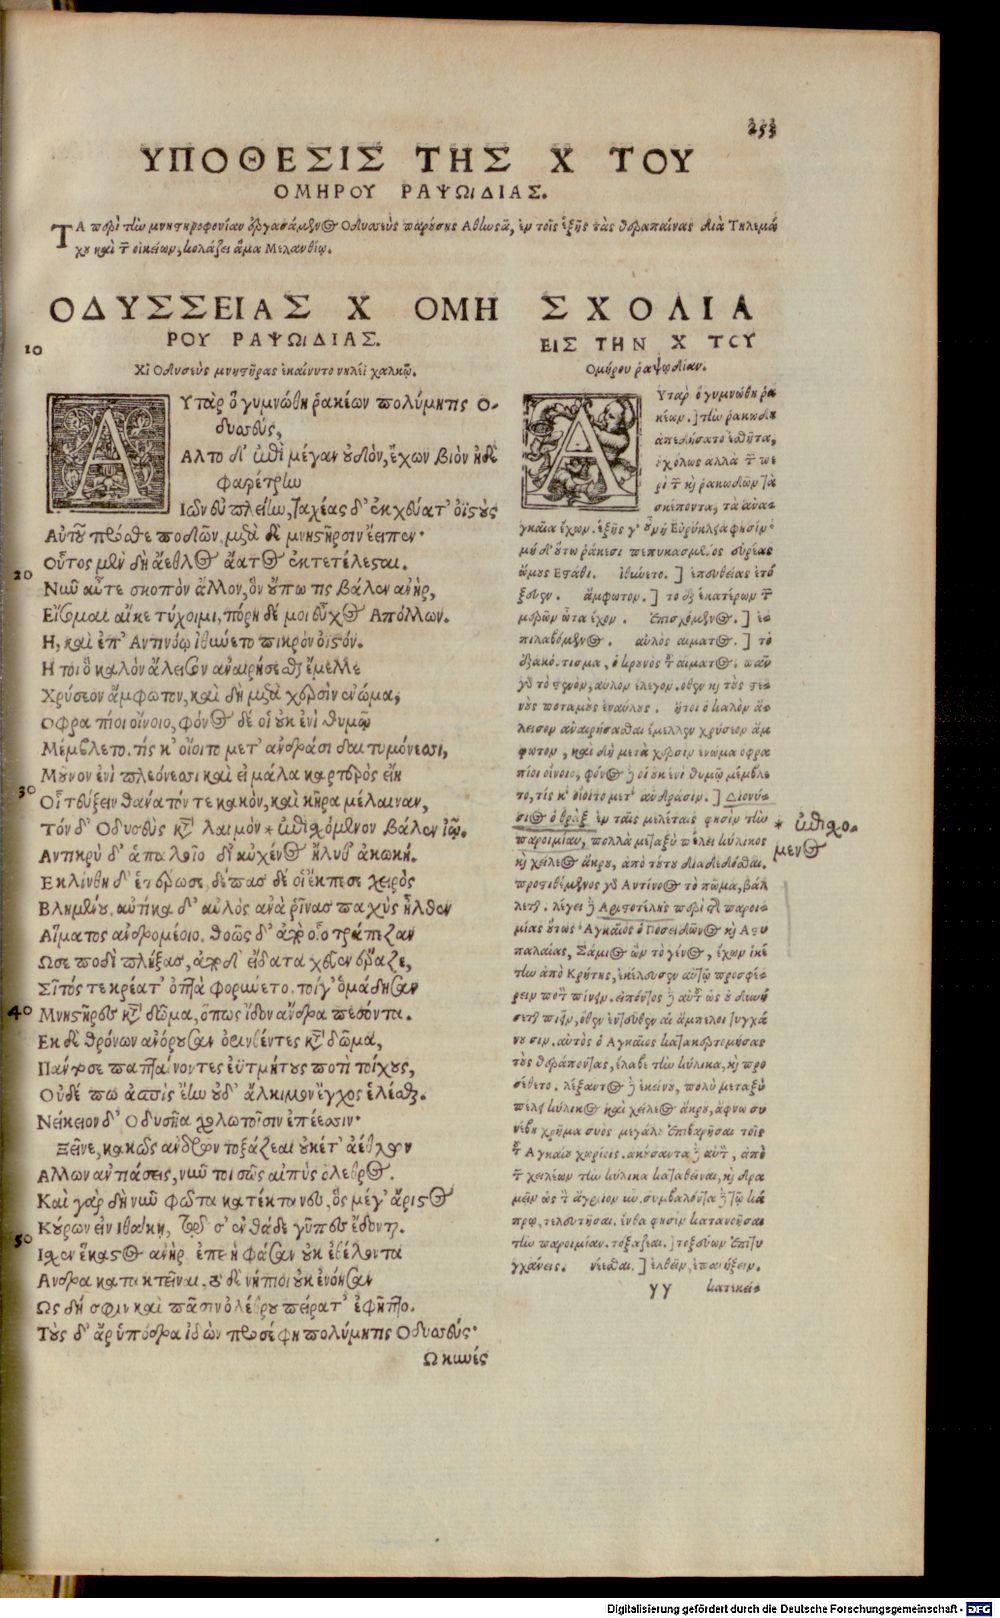 253
ΥΠΟΘΕΣΙΣ ΤΗΣ Χ ΤΟΥ
ΟΜΗΡΟΥ ΡΑΨΩΙΔΙΑΣ.
ΤΑ περὶ τὴν μνηστηροφονίαν ἐργασάμενος Οδυσσεὺς παρούσης Αθηνᾶς, ἐν τοῖς ἑξῆς τὰς θεραπαίνας διὰ Τηλεμά
χου καὶ τῶν οἰκείων, κολάζει ἅμα Μελανθίῳ.
ΟΔΥΣΣΕΙΑΣ Χ ΟΜΗ
ΡΟΥ ΡΑΨΩΙΔΙΑΣ.
10
Χῖ Οδυσεὺς μνηστῆρας ἐκαίνυτο νηλέϊ χαλκῷ.
ΑΥτὰρ ὁ γυμνώθη ῥακέων πολύμητις Ο-
δυσσεύς,
Αλτο δ' ἐπὶ μέγαν οὐδὸν, ἔχων βιὸν ἠδὲ
φαρέτρην
Ιῶν ἐμπλείην, ταχέας δ' ἐκχεύατ' ὀϊστοὺς
Αὐτοῦ πρόσθε ποδῶν, μετὰ δὲ μνηστῆρσιν ἔειπεν·
Οὗτος μὲν δὴ ἄεθλος ἄατος ἐκτετέλεσται.
20
Νῦν αὖτε σκοπὸν ἄλλον, ὃν οὔπω τις βάλεν ἀνὴρ,
Εἴσομαι αἴκε τύχοιμι, πόρῃ δέ μοι εὖχος Απόλλων.
Η, καὶ ἐπ' Αντινόῳ ἰθύνετο πικρὸν ὀϊστόν.
Η τοι ὁ καλὸν ἄλεισον ἀναιρήσεσθαι ἔμελλε
Χρύσεον ἄμφωτον, καὶ δὴ μετὰ χερσὶν ἐνώμα,
Οφρα πίοι οἴνοιο, φόνος δέ οἱ οὐκ ἐνὶ θυμῷ
Μέμβλετο. τίς κ' οἴοιτο μετ' ἀνδράσι δαιτυμόνεσσι,
Μοῦνον ἐνὶ πλεόνεσσι καὶ εἰ μάλα καρτερὸς εἴη
30
Οἷ τεύξειν θάνατόν τε κακὸν, καὶ κῆρα μέλαιναν,
Τόν δ' Οδυσεὺς κατὰ λαιμὸν * ἐπισχόμενον βάλεν ἰῷ.
Αντικρὺ δ' ἁπαλοῖο δι' αὐχένος ἤλυθ' ἀκωκή.
Εκλίνθη δ' ἑτέρωσε, δέπας δέ οἱ ἔκπεσε χειρὸς
Βλημένου, αὐτίκα δ' αὐλὸς ἀνὰ ῥῖνας παχὺς ἦλθεν
Αἵματος ἀνδρομέοιο. θοῶς δ' ἀπὸ οἷο τράπεζαν
Ωσε ποδὶ πλήξας, ἀπὸ δ' εἴδατα χεῦεν ἔραζε,
Σῖτός τε κρέατ' ὀπτὰ φορύνετο. τοὶ γ' ὁμάδησαν
40
Μνηστῆρες κατὰ δῶμα, ὅπως ἴδον ἄνδρα πεσόντα.
Εκ δὲ θρόνων ἀνόρουσαν ὀρινθέντες κατὰ δῶμα,
Πάντοσε παπταίνοντες ἐϋτμήτους ποτὶ τοίχους,
Οὐδέ πω ἀσπὶς ἔην οὐδ' ἄλκιμον ἔγχος ἑλέσθαι.
Νείκειον δ' Οδυσῆα χολωτοῖσιν ἐπέεσσιν·
Ξεῖνε, κακῶς ἀνδρῶν τοξάζεαι οὐκέτ' ἀέθλων
Αλλων ἀντιάσεις, νῦν τοι σῶς αἰπὺς ὄλεθρος.
Καὶ γὰρ δὴ νῦν φῶτα κατέκτανες, ὃς μέγ' ἄριστος
Κούρων εἰν ἰθάκῃ, τῷ σ' ἐνθάδε γῦπες ἔδονται.
50
Ισκεν ἕκαστος ἀνὴρ ἐπειὴ φάσαν οὐκ ἐθέλοντα
Ανδρα κατακτεῖναι, τὸ δὲ νήπιοι οὐκ ἐνόησαν
Ως δή σφιν καὶ πᾶσιν ὀλέθρου πείρατ' ἐφῆπτο.
Τοὺς δ' ἄρ' ὑπόδρα ἰδὼν προσέφη πολύμητις Οδυσσεύς·
Ω κύνές
ΣΧΟΛΙΑ
ΕΙΣ ΤΗΝ Χ ΤΟΥ
Ομήρου ῥαψῳδίαν.
ΑΥτὰρ ὁ γυμνώθη ῥα
κέων.] τὴν ῥακώδη
ἀπεδύσατο ἐσθῆτα,
οὐχ ὅλως ἀλλὰ τῶν πε
ρὶ τῶν ῥακωδῶν τὰ
σκέποντα, τὰ ἀναγ
καῖα ἔχων. ἑξῆς γ' οὖν ἡ Εὐρύκλεια φησίν·
μὴ δ' οὕτω ῥάκεσι πεπυκασμένος εὐρέας
ὤμους Εσταθι. ἰθύνετο.] ἐπευθείας ἐτό
ξευεν. ἄμφωτον.] τὸ ἐξ ἑκατέρων τῶν
μερῶν ὦτα ἔχον. Επισχόμενος.] ἐπ
πιλαβόμενος. αὐλὸς αἵματος.] τὸ
ἐξακόντισμα, ὁ κρουνὸς τοῦ αἵματος. πᾶν
γὰρ τὸ στενὸν, αὐλὸν ἔλεγον. ὅθεν καὶ τοὺς στε
νοὺς ποταμοὺς ἐναύλους. ἤτοι ὁ καλὸν ἄ
λεισον ἀναιρήσασθαι ἔμελλεν χρύσεον ἄμ
φωτον, καὶ δὴ μετὰ χερσὶν ἐνώμα ὄφρα
πίοι οἴνοιο, φόνος δὲ οἱ οὐκ ἐνὶ θυμῷ μέμβλε
το, τίς κ' οἴοιτο μετ' ἀνδράσιν.] Διονύ
σιος ὁ θρᾷξ ἐν ταῖς μελέταις φησὶν τὴν
παροιμίαν, πολλὰ μεταξὺ πέλει κύλικος
καὶ χείλεος ἄκρου, ἀπὸ τούτου διαδεδόσθαι.
προτιθέμενος γὰρ Αντίνοος τὸ πῶμα, βάλ
λεται. λέγει δὲ Αριστοτέλης περὶ τῆς παροι
μίας οὕτως· Αγκαῖος ὁ Ποσειδῶνος καὶ Αστυ
παλαίας, Σάμιος ὢν τὸ γένος, ἔχων οἰκέ
την ἀπὸ Κρήτης, ἐκέλευσεν αὐτῷ προσφέ
ρειν ποτὸν πίνειν. εἰπόντος δὲ αὐτοῦ ὡς οὐ δυνή
σεται πιεῖν, ὅθεν ἐνταῦθεν αἱ ἄμπελοι τυγχά
νουσιν. αὐτὸς ὁ Αγκαῖος κατακερτομήσας
τοὺς θεράποντας, ἔλαβε τὴν κύλικα, καὶ προ
σέθετο. λέξαντος δὲ ἐκείνου, πολὺ μεταξὺ
πέλει κύλικος καὶ χείλεος ἄκρου, ἄφνω συ
νέβη χρῆμα συὸς μεγάλου ἐπιβαρῆσαι τοῖς
τοῦ Αγκαίου χωρίοις. ἀκούσαντα δὲ αὐτὸν, ἀπὸ
τῶν χειλέων τὴν κύλικα καταθεῖναι, καὶ δρα
μεῖν ὡς τὸν ἄγριον σῦν. συμβαλόντα δὲ τῷ κά
πρῳ, τελευτῆσαι. ἔνθα φησὶν κατανοῆσαι
τὴν παροιμίαν. τοξάζεαι.] τοξεύων ἐπιτυ
γχάνεις. νέεσθαι.] ἐλθεῖν, ἐπανήξειν.
γγ κατεκεί-
* ἐπισχό-
μενος
Digitalisierung gefördert durch die Deutsche Forschungsgemeinschaft - DFG